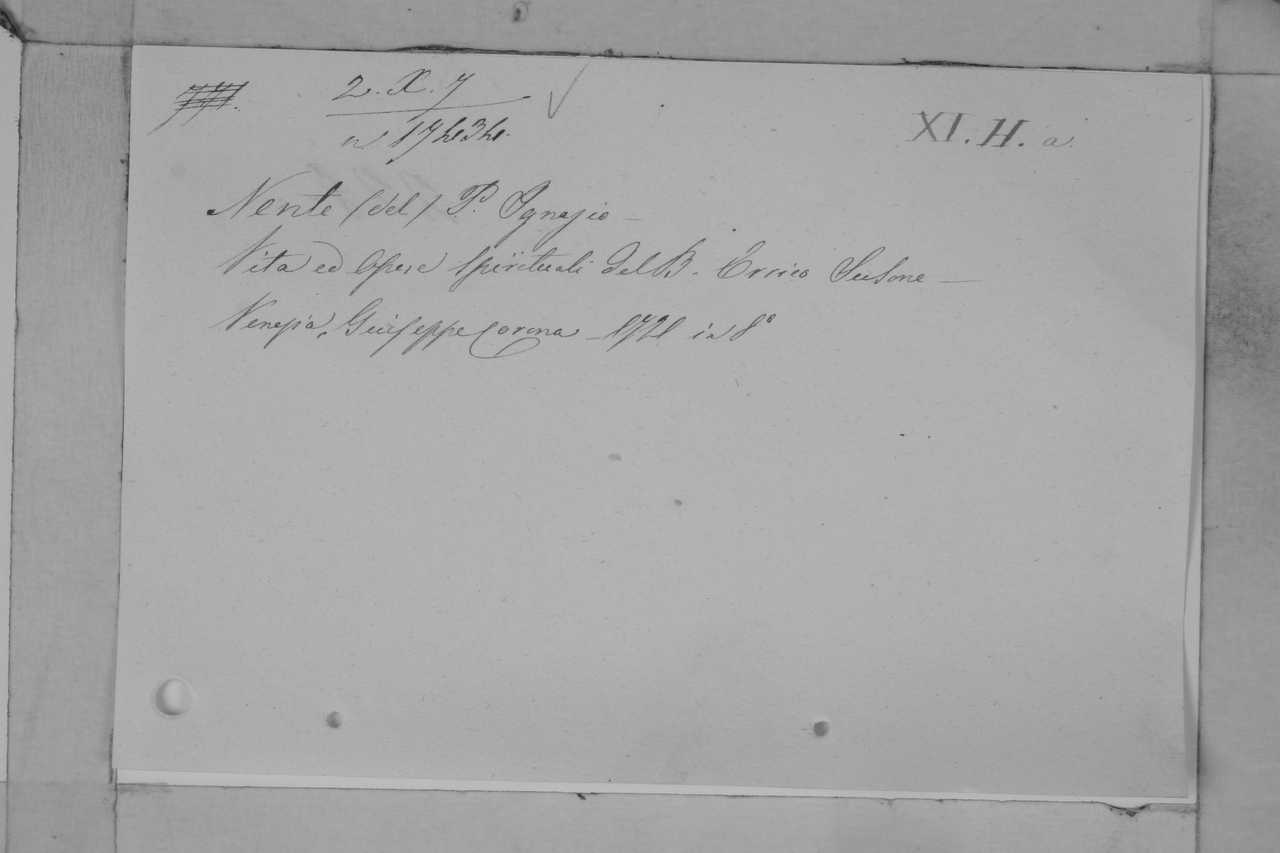 2. X. 7
n 17434.
XI. H. a.
Nente (del) P. Ignazio —
Vita ed Opere Spirituali del B. Errico Susone —
Venezia, Giuseppe Corona — 1721 in 8°